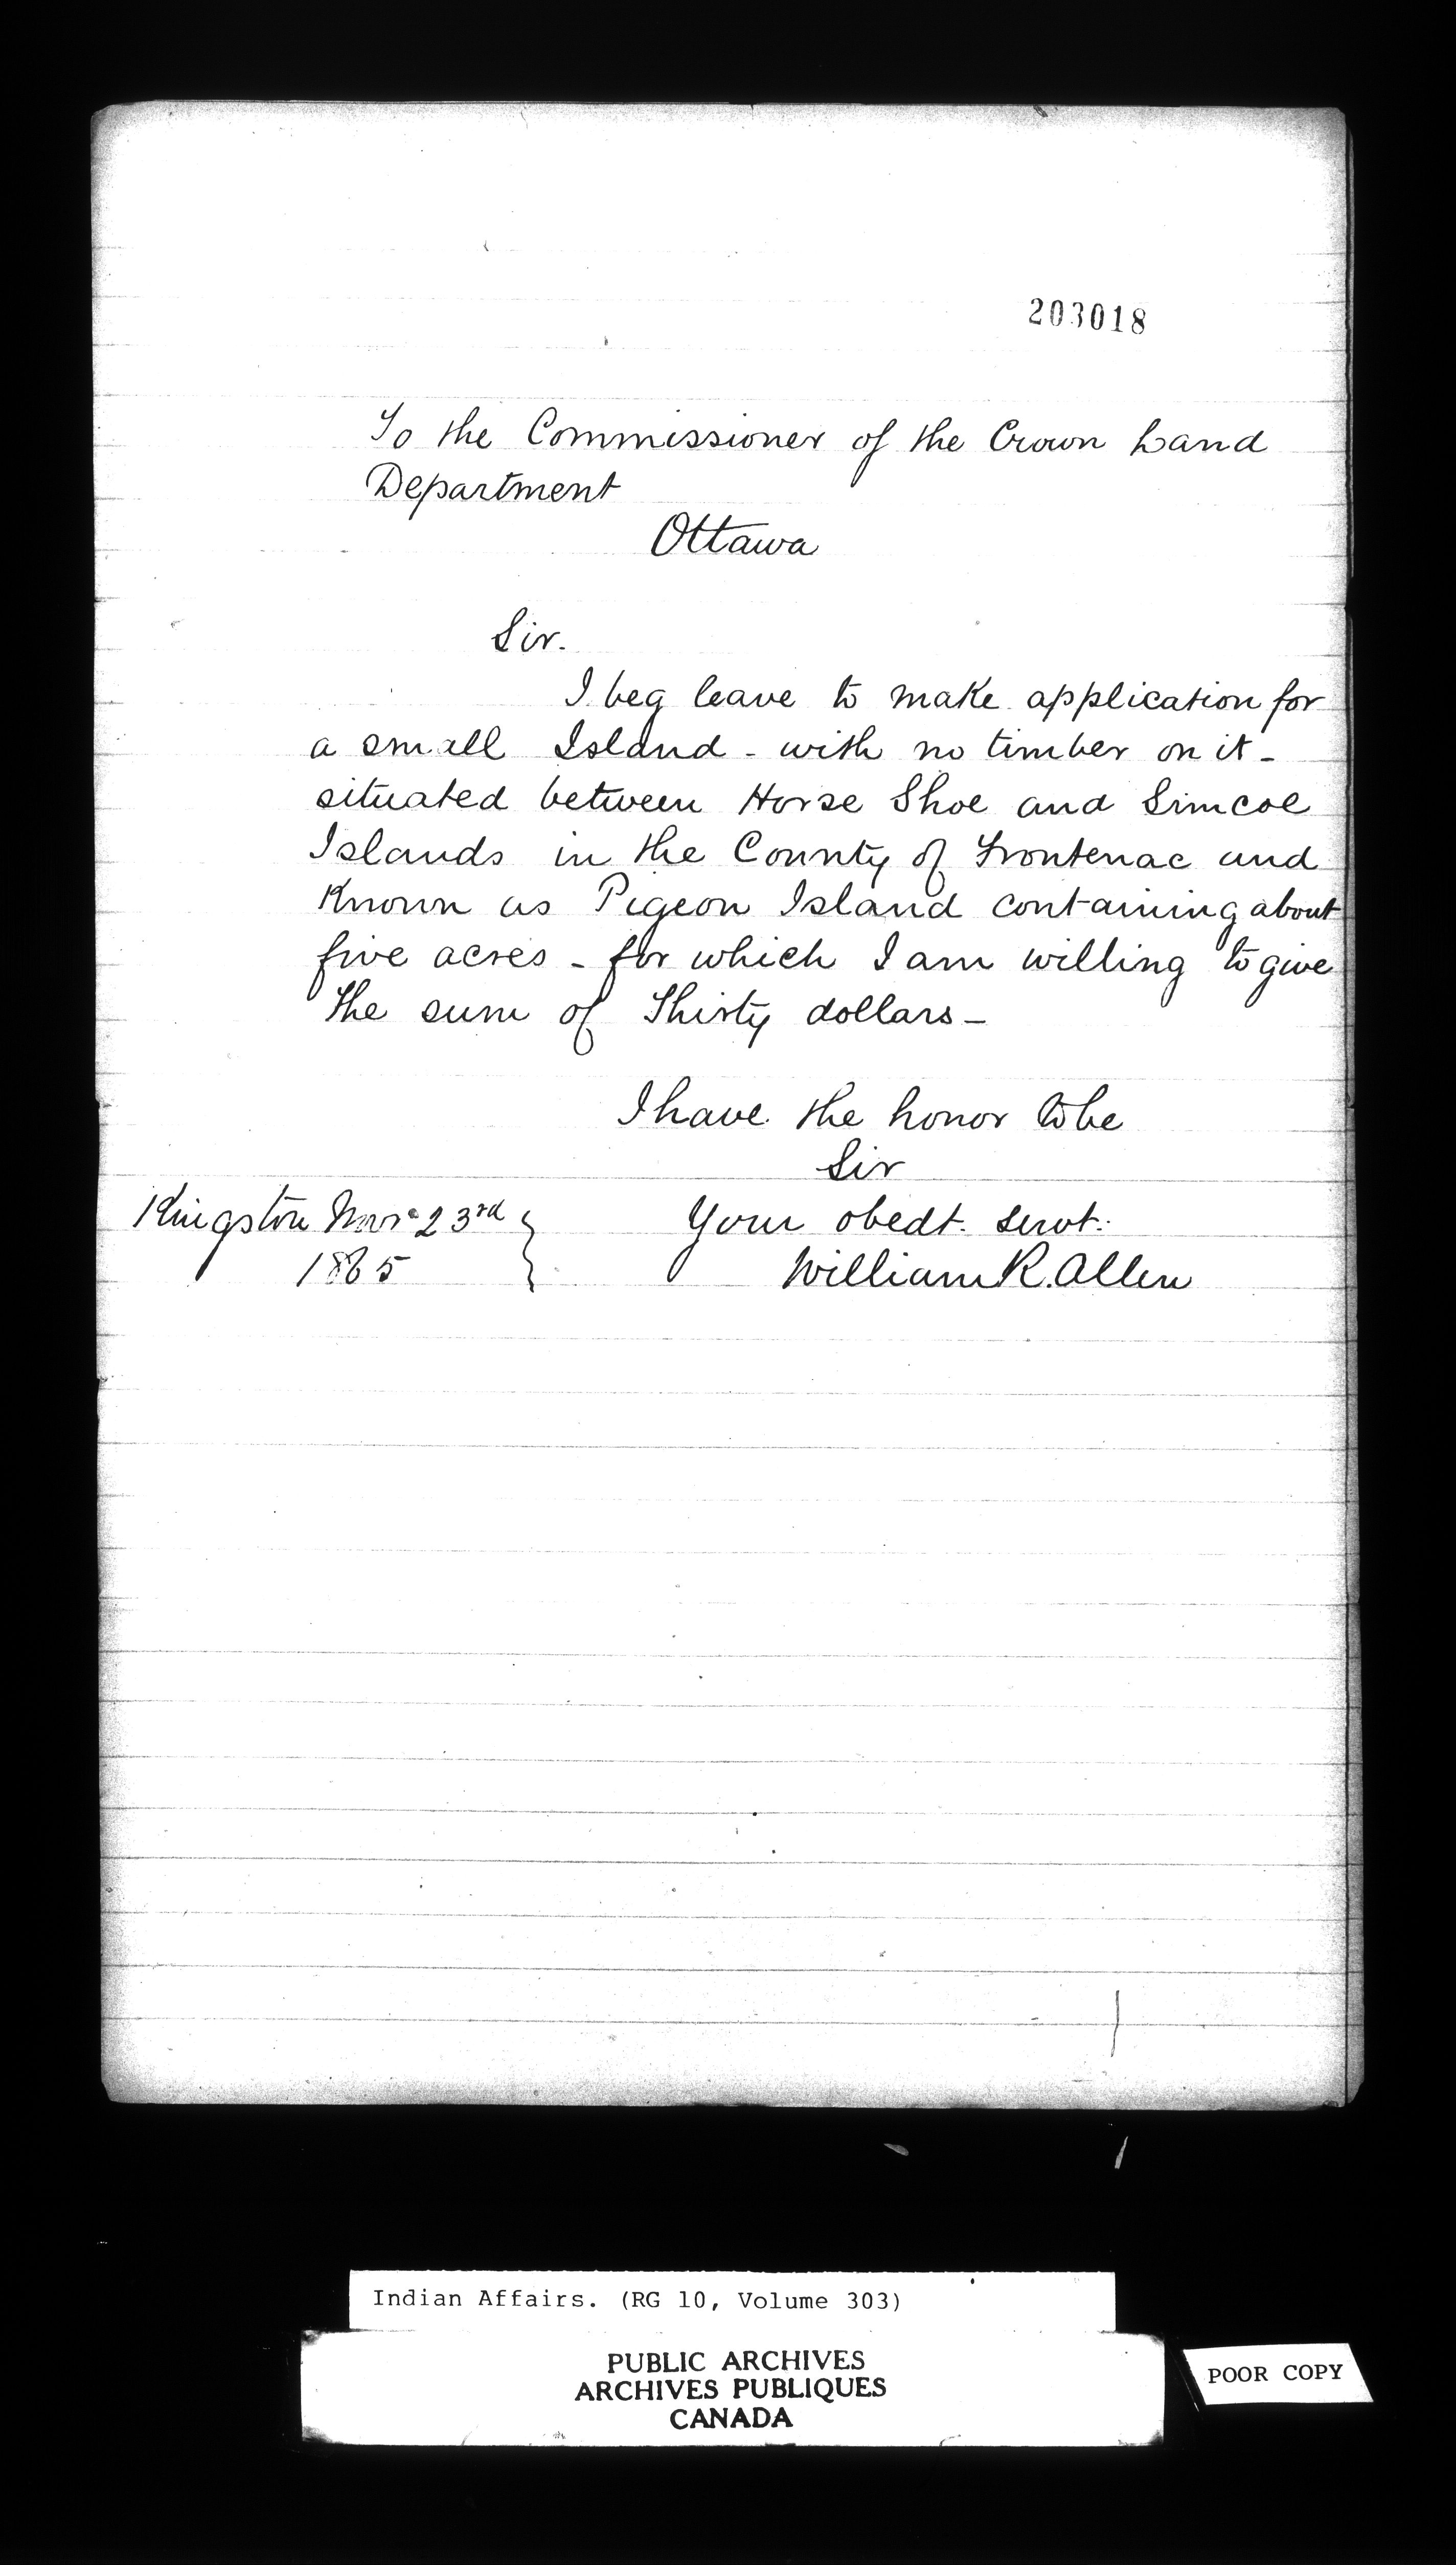 203018
To the Commissioner of the Crown Land
Department
Ottawa
Sir.
I beg leave to make application for
a small Island - with no timber on it -
situated between Horse Shoe and Simcoe
Islands in the County of Frontenac and
Known as Pigeon Island containing about
five acres - for which I am willing to give
the sum of Thirty dollars -
I have the honor to be
Sir
Kingston Novr 23rd
Your obedt. servt.
1865
William R. Allen
Indian Affairs. (RG 10, Volume 303)
PUBLIC ARCHIVES
ARCHIVES PUBLIQUES
CANADA
POOR COPY